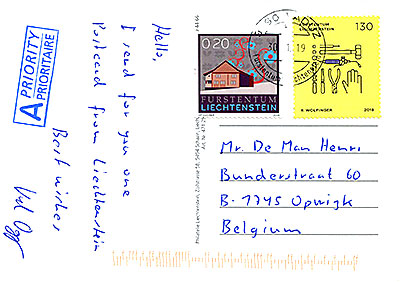 Hello,
I send for you one
Postcard from Liechtenstein
Best wishes
A PRIORITY
PRIORITAIRE
0.20
FÜRSTENTUM
LIECHTENSTEIN
FÜRSTENTUM
LIECHTENSTEIN
130
R. WOLFINGER
2019
Mr. De Man Henri
Bunderstraat 60
B-1745 Opwijk
Belgium